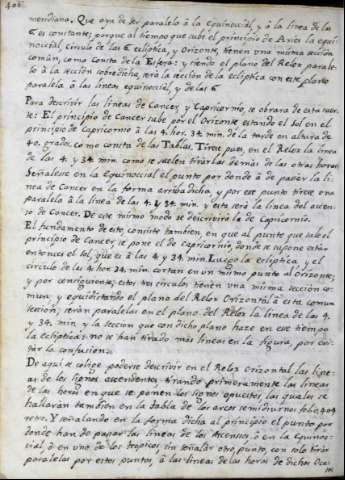 408.
meridiana. Que aya de ser paralela à la Equinoccial, y à la linea de las
6 es constante; porque al tiempo que sube el principio de Aries la equi-
noccial, circulo de las 6 ecliptica, y Orizonte, tienen una misma sección
comun, como consta de la Esfera: y siendo el plano del Relox parale-
lo à la sección sobredicha, será la sección de la ecliptica con este plano
paralela à las lineas equinoccial, y de las 6
Para describir las lineas de Cancer, y Capricornio, se obrara de esta suer-
te: El principio de Cancer sube por el Orizonte estando el Sol en el
principio de Capricornio à las 4. hor. 34. min. de la tarde en altura de
40. grados, como consta de las Tablas. Tirese pues, en el Relox la linea
de las 4. y 34. min. como se suelen tirar las demàs de las otras horas.
Señalese en la Equinoccial el punto por donde à de pasar la li-
nea de Cancer en la forma arriba dicha, y por este punto tirese una
paralela à la linea de las 4. y 34. min. y esta será la linea del ascen-
so de Cancer. De este mismo modo se describirá la de Capricornio.
El fundamento de esto, consiste tambien, en que al punto que sube el
principio de Cancer se pone el de capricornio, donde se supone estar
entonces el Sol, que es à las 4 y 34. min. Luego la ecliptica, y el
circulo de las 4. hor. 34. min. cortan en un mismo punto al orizonte;
y por consiguiente, estos tres circulos tienen una misma sección co-
mun, y equidistando el plano del Relox Orizontal à esta comun
sección, serán paralelas en el plano del Relox la linea de las 4.
y 34. min. y la seccion que con dicho plano haze en ese tiempo
la ecliptica: no se han tirado mas lineas en la figura, por evi-
tar la confusion.
De aqui se colige poderse descrivir en el Relox orizontal las line-
as de los signos ascendentes, tirando primeramente las lineas
de las horas en que se ponen los signos opuestos, las quales se
hallarán tambien en la tabla de los arcos semidiurnos folio 404
retro. Y señalando en la forma dicha al principio el punto por
donde han de pasar las lineas de los Ascensos, ò en la Equinoc-
cial, ò en uno de los tropicos, sin señalar otro punto, con solo tirar
paralelas por estos puntos, à las lineas de las horas de dichos Oca-